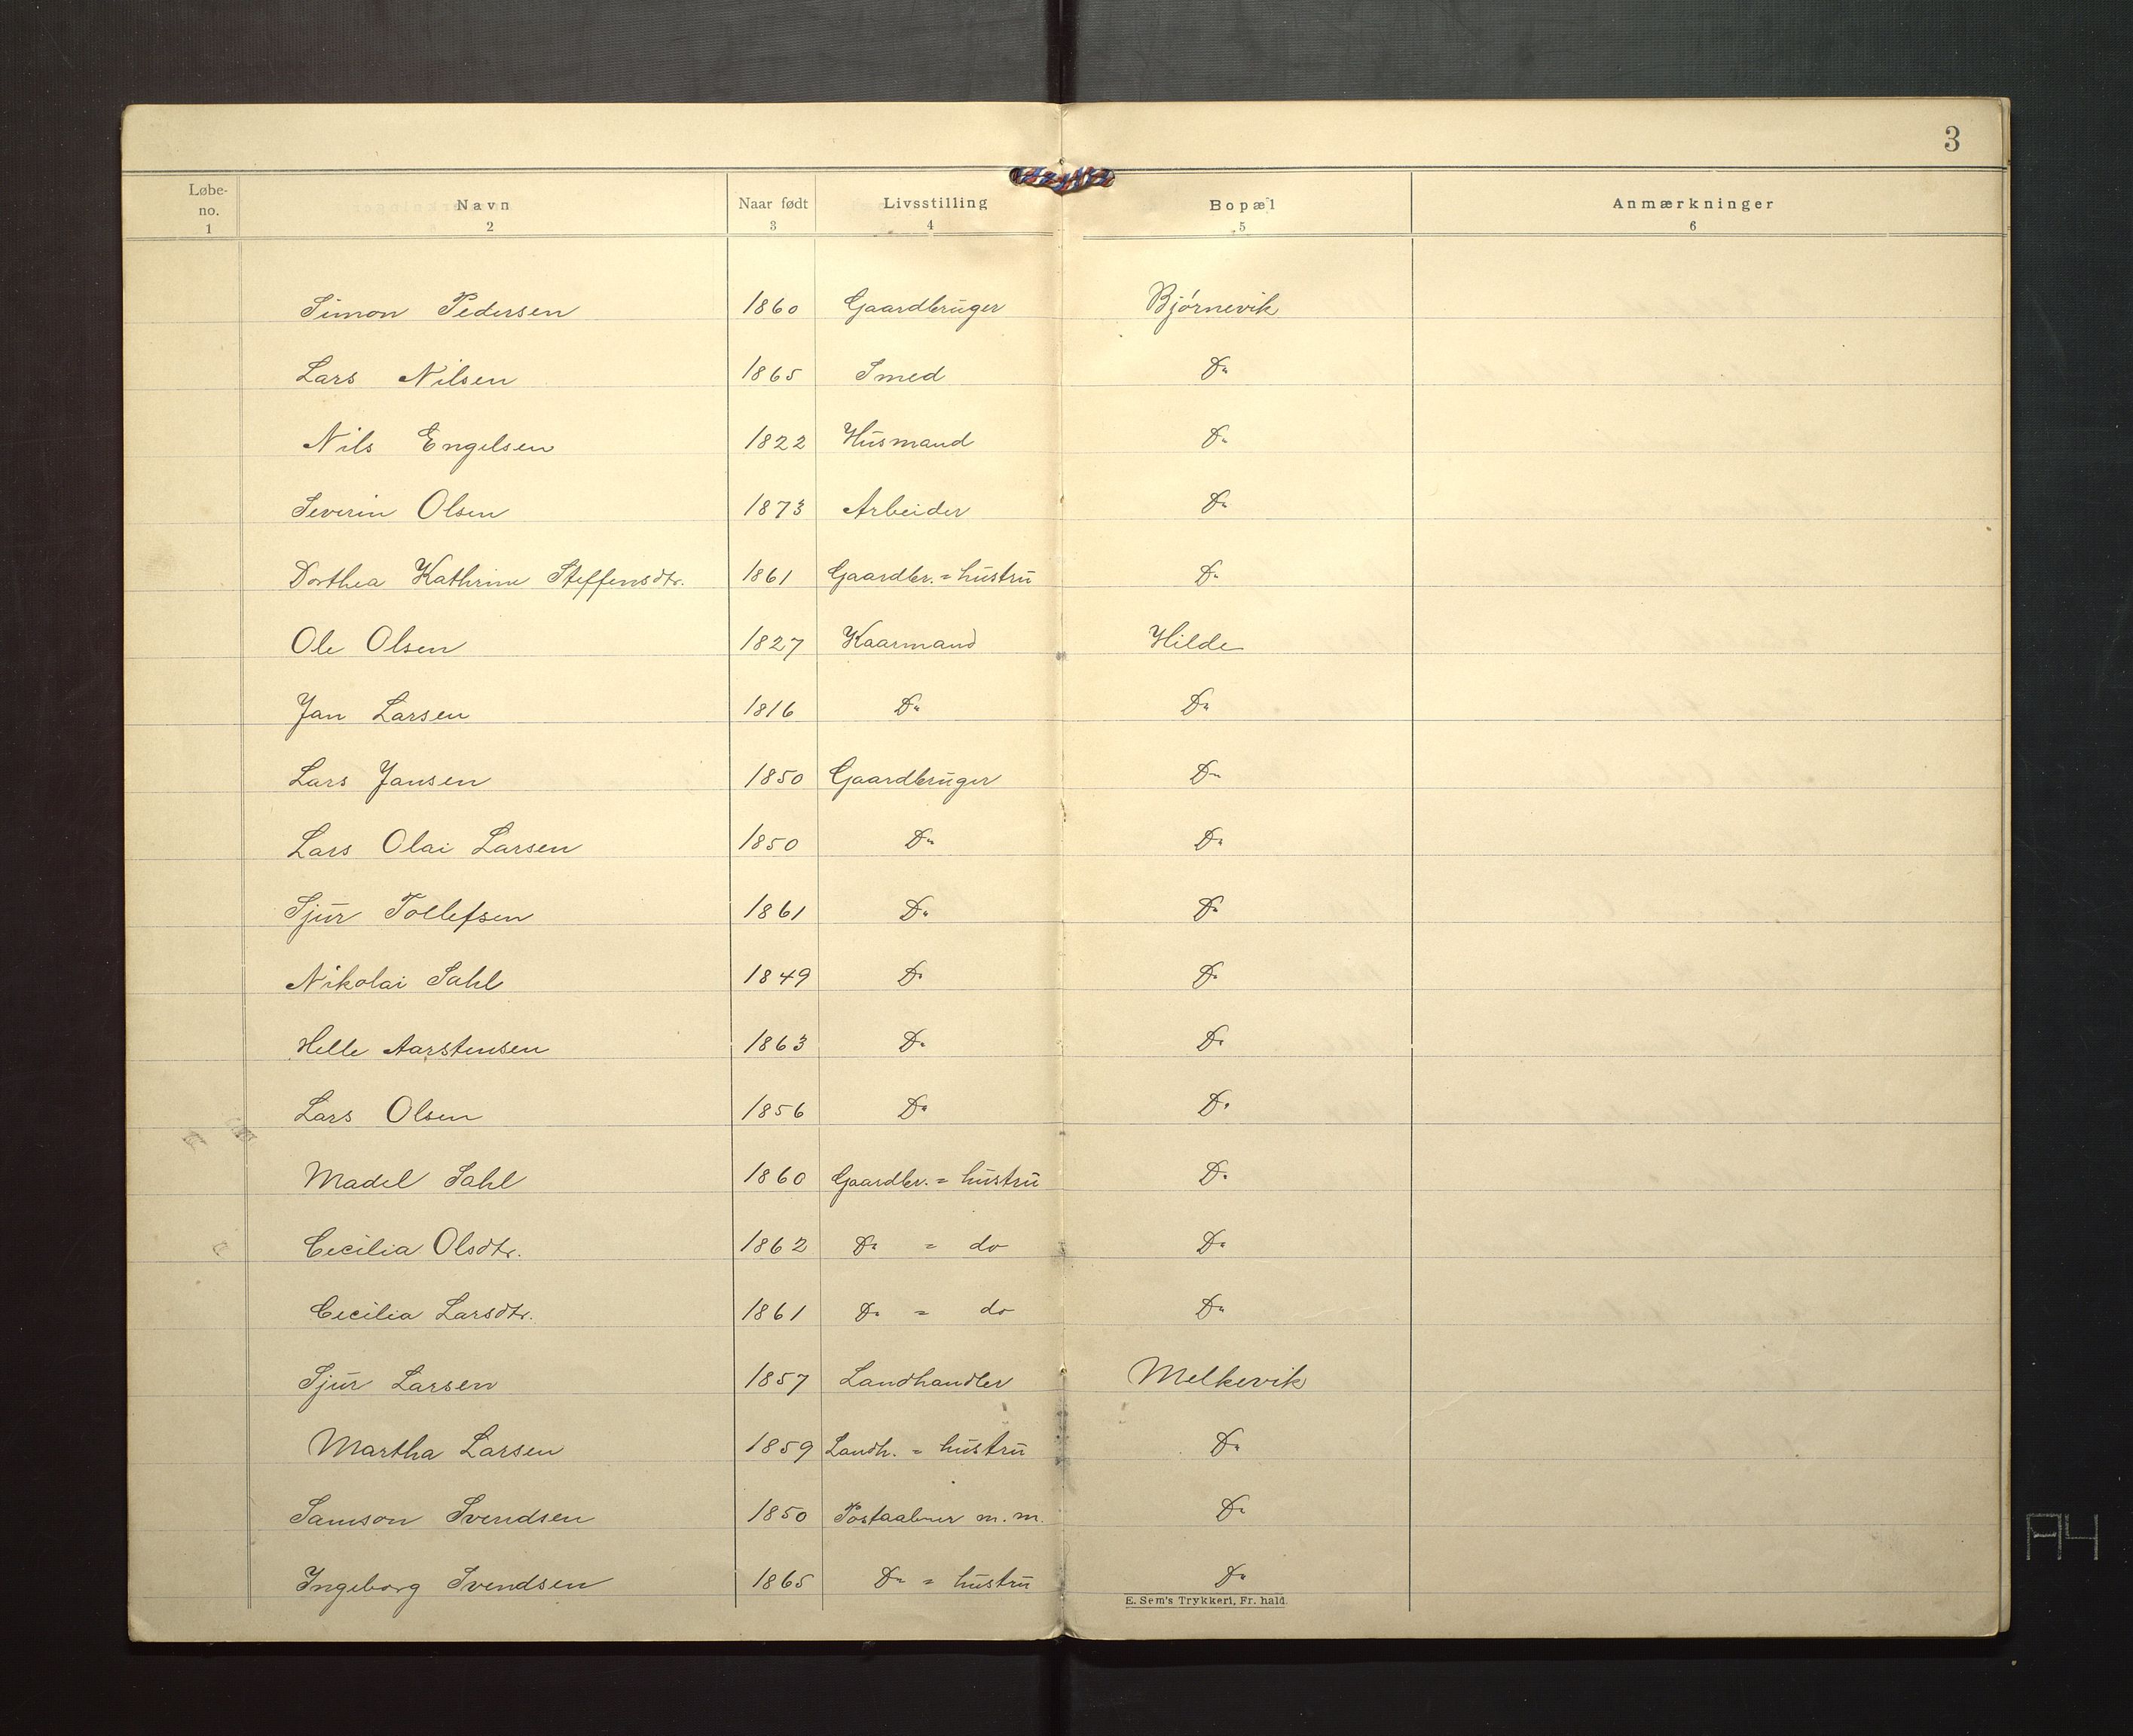 3
Løbe-no. 1 Navn 2 Naar født 3 Livsstilling 4 Bopæl 5 Anmærkninger 6
Simon Pedersen 1860 Gaardbruger Bjørnevik
Lars Nilsen 1865 Smed Do
Nils Engelsen 1822 Husmand Do
Severin Olsen 1873 Arbeider Do
Dorthea Kathrine Steffensdtr. 1861 Gaardbr. = hustru Do
Ole Olsen 1827 Kaarmand Hilde
Jan Larsen 1816 Do Do
Lars Jansen 1850 Gaardbruger Do
Lars Olai Larsen 1850 Do Do
Sjur Tollefsen 1861 Do Do
Nikolai Dahl 1849 Do Do
Helle Aarstensen 1863 Do Do
Lars Olsen 1856 Do Do
Madel Dahl 1860 Gaardbr. = hustru Do
Cecilia Olsdtr. 1862 Do = do Do
Cecilia Larsdtr. 1861 Do = do Do
Sjur Larsen 1857 Landhandler Melkevik
Martha Larsen 1859 Landh. = hustru Do
Samson Svendsen 1850 Postaabner m. m. Do
Ingeborg Svendsen 1865 Do = hustru Do
E. Sem's Trykkeri, Fr. hald.
A4